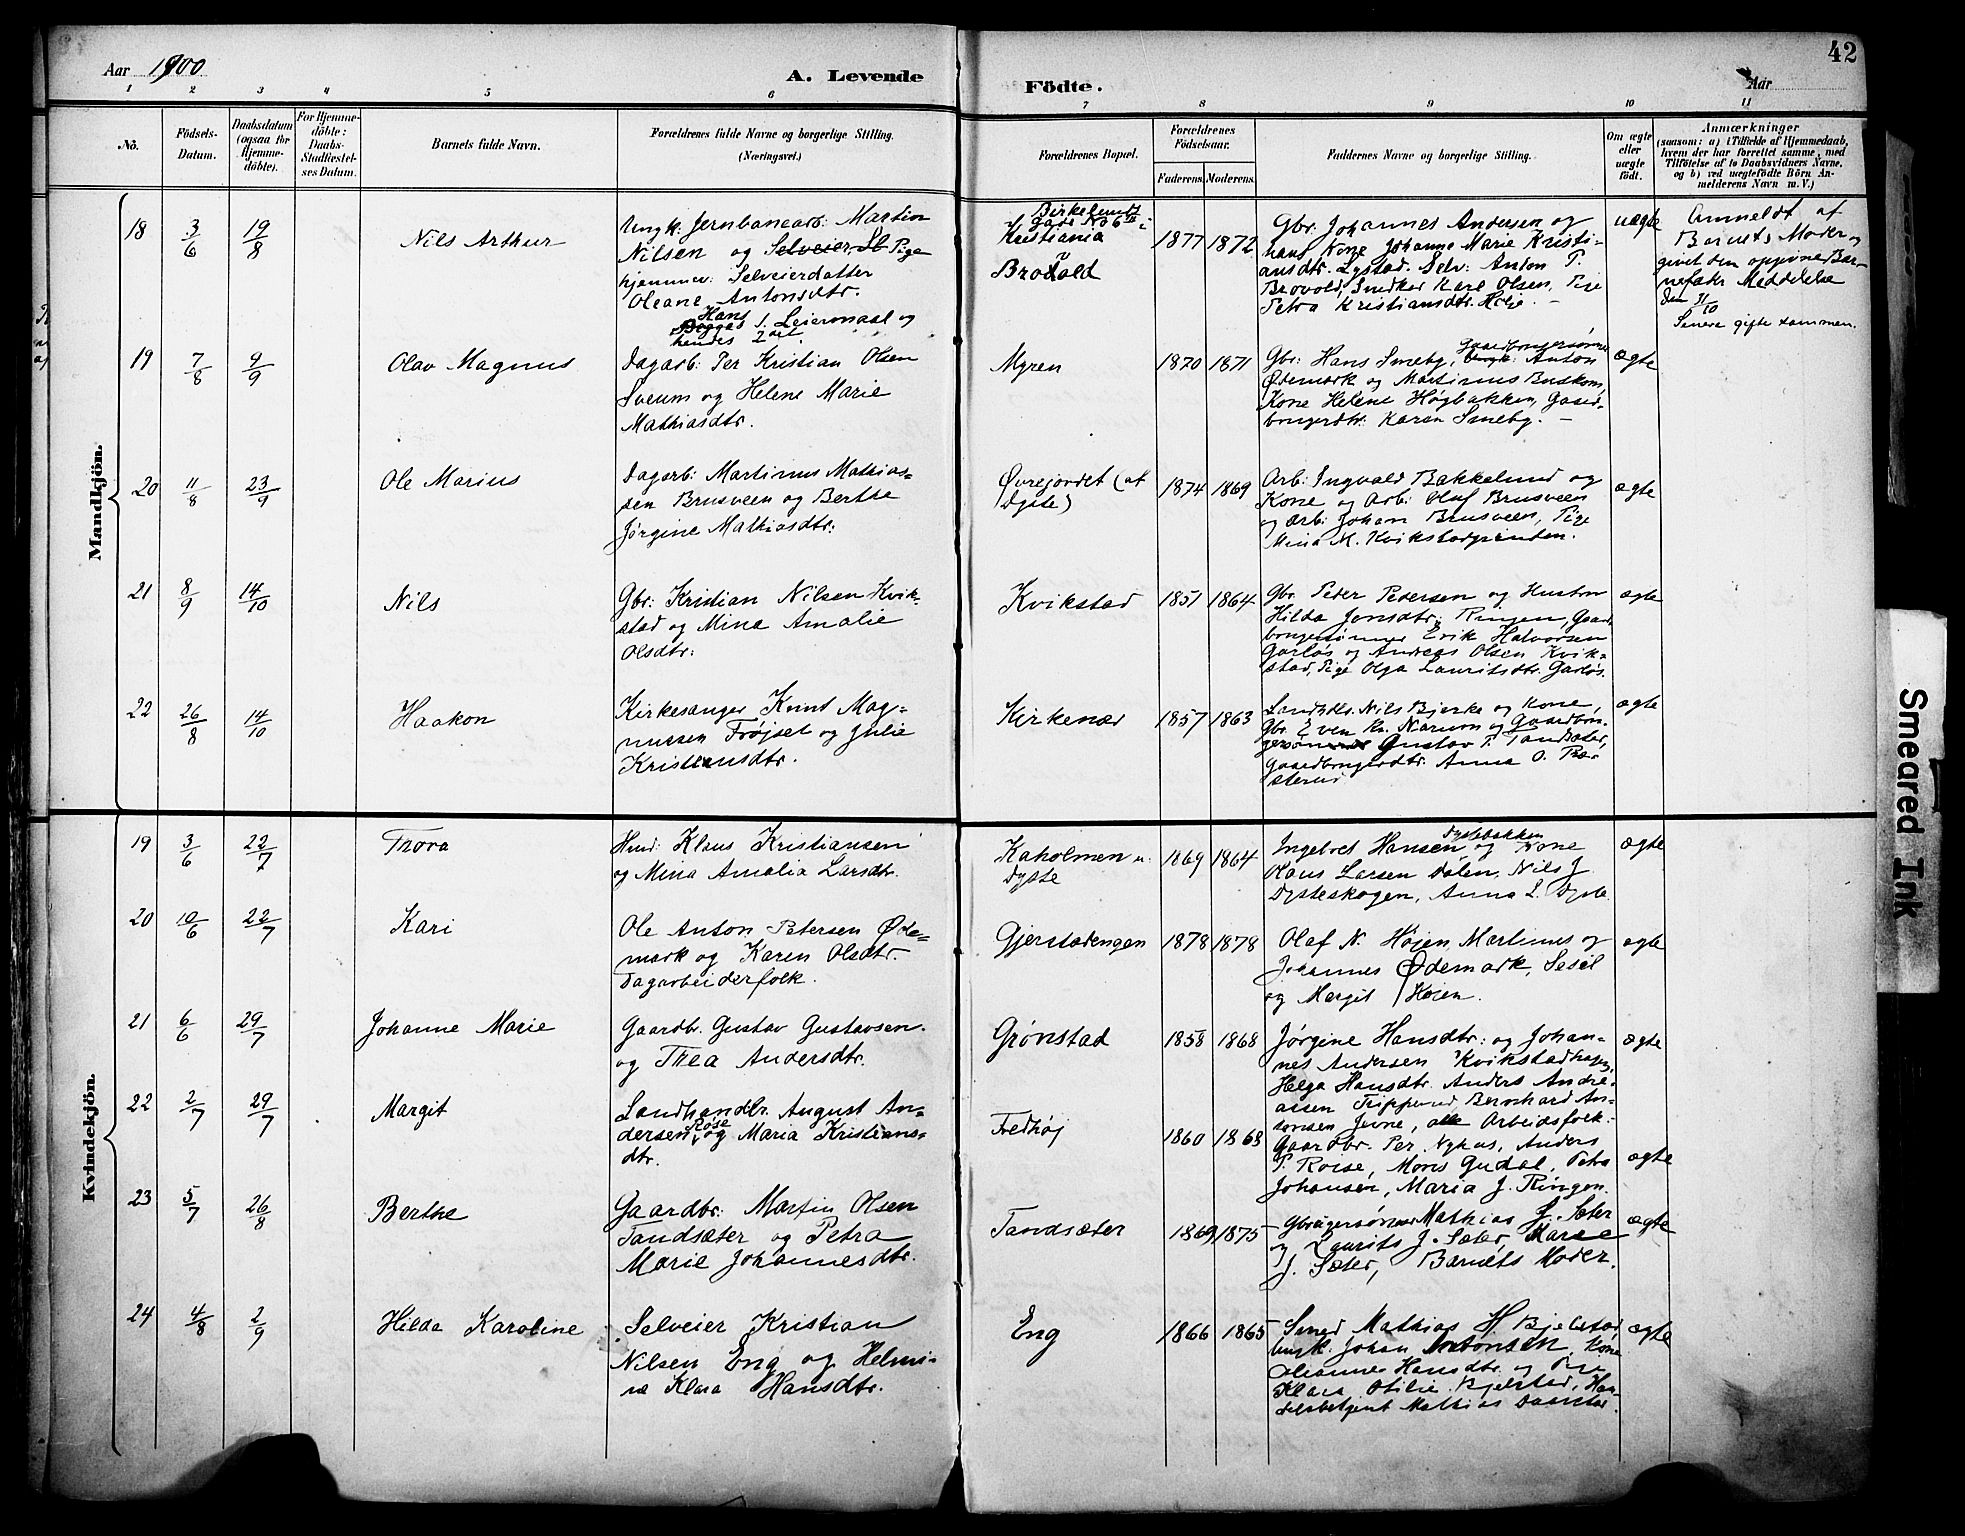 42
Aar 1900
A. Levende
Födte.
Aar
1 2 3 4 5 6 7 8 9 10 11
Nô.
Födsels-
Datum.
Daabsdatum
(ogsaa for
Hjemme-
döbte).
For Hjemme-
döbte:
Daabs-
Stadfæstel-
ses Datum.
Barnets fulde Navn.
Forældrenes fulde Navne og borgerlige Stilling.
(Næringsvei.)
Forældrenes Bopæl.
Forældrenes
Födselsaar.
Faderens. Moderens.
Faddernes Navne og borgerlige Stilling.
Om ægte
eller
uægte
födt.
Anmærkninger
(saasom: a) i Tilfælde af Hjemmedaab,
hvem der har forrettet samme, med
Tilföielse af to Daabsvidners Navne,
og b) ved uægtefödte Börn An-
melderens Navn m. V.)
Mandkjön.
18
3/6
19/8
Nils Arthur
Ungk: Jernbanearb: Martin
Nilsen og Selveier Pige
hjemmev: Selveierdatter
Oleane Antonsdtr.
Hans
Begges 1. Leiermaal og
hendes 2det.
Kristiania
Brovold
1877
1872
Gbr: Johannes Andersen og
hans Kone Johanne Marie Kristi-
ansdtr. Lystad. Selv: Anton P.
Brovold, Snedker Karl Olsen, Pige
Petra Kristiansdtr. Høje. –
uægte
Anmeldt af
Barnets Moder og
givet den oppevne Bar-
nefakr Meddelelse
den 31/10
Senere gifte sammen.
19
7/8
9/9
Olav Magnus
Dagarb: Per Kristian Olsen
Sveum og Helene Marie
Mathiasdtr.
Myren
1870
1871
Gbr: Hans Smeby, Gaardbrugersønner
Anton
Ødemark og Martinus Buskom,
Kone Helene Høgbakken, Gaard-
brugerdtr: Karen Smeby. –
ægte
20
11/8
23/9
Ole Marius
Dagarb: Martinus Mathias-
sen Brusveen og Berthe
Jørgine Mathiasdtr:
Øvrejordet (at
Dyste)
1874
1869
Arb: Ingvald Bakkelund og
Kone og Arb: Oluf Brusveen
og Arb: Johan Brusveen, Pige
Mina M. Kvikstadgrinden.
ægte
21
8/9
14/10
Nils
Gbr: Kristian Nilsen Kvik-
stad og Mina Amalie
Olsdtr:
Kvikstad
1851
1864
Gbr. Peder Pedersen og Hustru
Hilda Jonsdtr: Ringen, Gaard-
brugersønner Erik Halvorsen
Garløs og Andreas Olsen Kvik-
stad, Pige Olga Lauritsdtr. Garløs.
ægte
22
26/8
14/10
Haakon
Kirkesanger Knut Mag-
nussen Frøjset og Julie
Kristiansdtr.
Kirkenær
1857
1863
Landhdlr. Nils Bjerke og Kone,
Gbr. Even Kr. Narum og Gaardbru-
gersøn Gustav P. Tandsæter,
Gaardbrugerdtr. Anna O. Præ-
sterud
ægte
Kvindekjön.
19
3/6
22/7
Thora
Husd: Klaus Kristiansen
og Mina Amalia Larsdtr.
Kaholmen u.
Dyste
1869
1864
Dystebakken
Ingebret Hansen og Kone
Olaus Larsen Dalen, Nils J
Dysteskogen, Anna L. Dyste
ægte
20
10/6
22/7
Kari
Ole Anton Petersen Øde-
mark og Karen Olsdtr.
Dagarbeiderfolk.
Gjerstadengen
1878
1878
Olaf N. Høien, Martinus og
Johannes Ødemark, Sesil
og Margit Høien.
ægte
21
6/6
29/7
Johanne Marie
Gaardbr. Gustav Gustavsen
og Thea Andersdtr.
Grønstad
1858
1868
Jørgine Hansdtr: og Johan-
nes Andersen Kvikstadhagen,
Helga Hansdtr. Anders Andre-
assen Tripperud Bernhard An-
tonsen Jevne, alle Arbeidsfolk.
ægte
22
2/7
29/7
Margit
Landhandlr. August An-
dersen Røise og Maria Kristians-
dtr.
Fredhøj
1860
1868
Gaardbr. Per Nyhus, Anders
P. Roise, Mons Gudal, Petra
Johansen, Maria J. Ringen.
ægte
23
5/7
26/8
Berthe
Gaardbr: Martin Olsen
Tandsæter og Petra
Marie Johannesdtr.
Tandsæter
1869
1875
Gbrugersønner Mathias J. Sæter
og Laurits J. Sæter, Karee
J. Sæter, Barnets Moder.
ægte
24
4/8
2/9
Hilda Karoline
Selveier Kristian
Nilsen Eng og Helmi-
ne Klara Hansdtr.
Eng
1866
1865
Smed Mathias H Bjelstad,
Ungk. Johan Antonsen, Kone
Oleanne Hansdtr. og Pige
Klara Otilie Bjelstad, Han-
delsbetjent Mathias
ægte
Smeared Ink